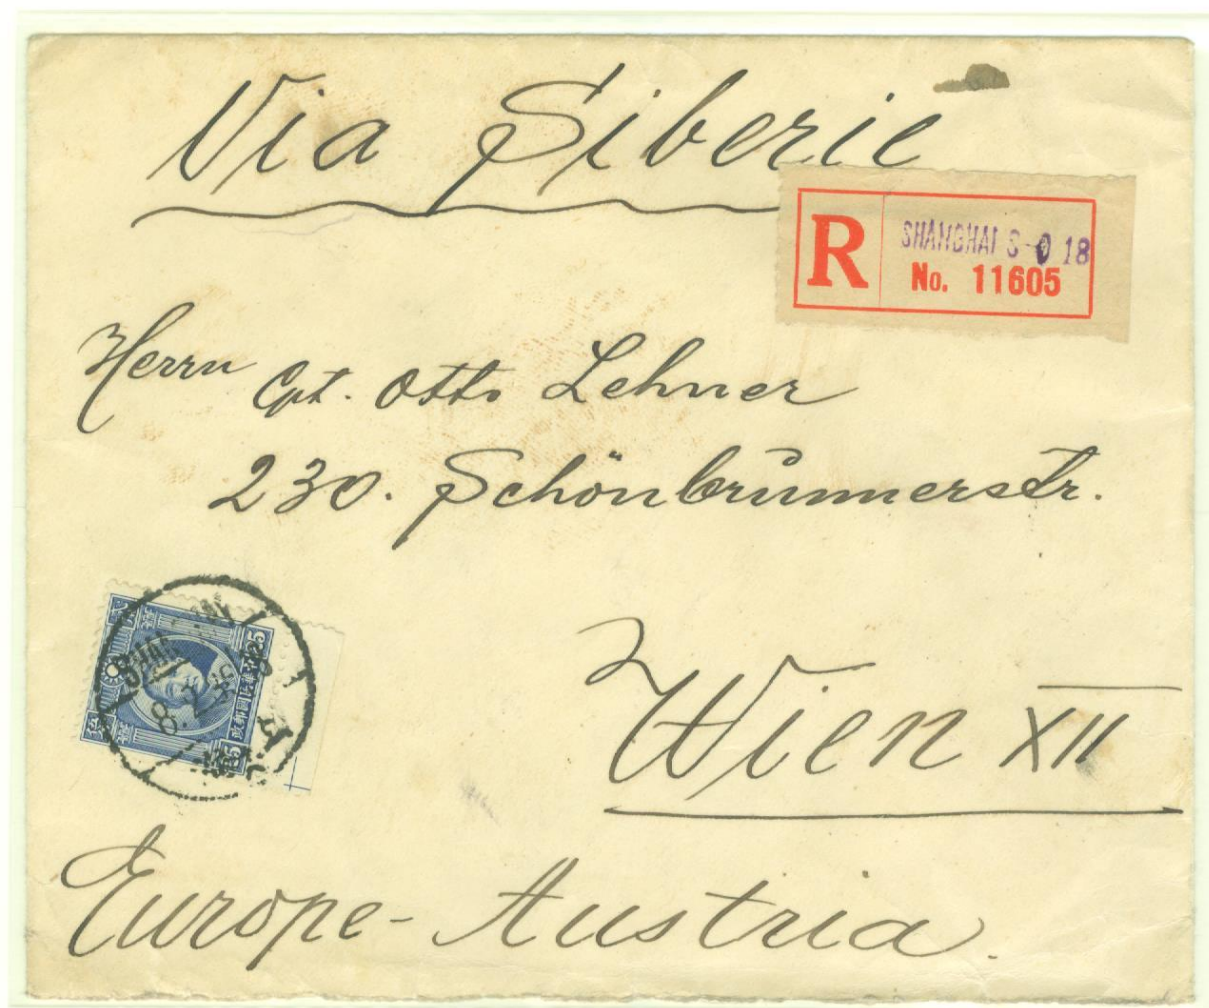 Via Siberie
R
SHANGHAI S-O 18
No. 11605
Herrn Cpt. Otto Lehner
230. Schönbrunnerstr.
25
8. 2.
25
Wien XII
Europe - Austria.